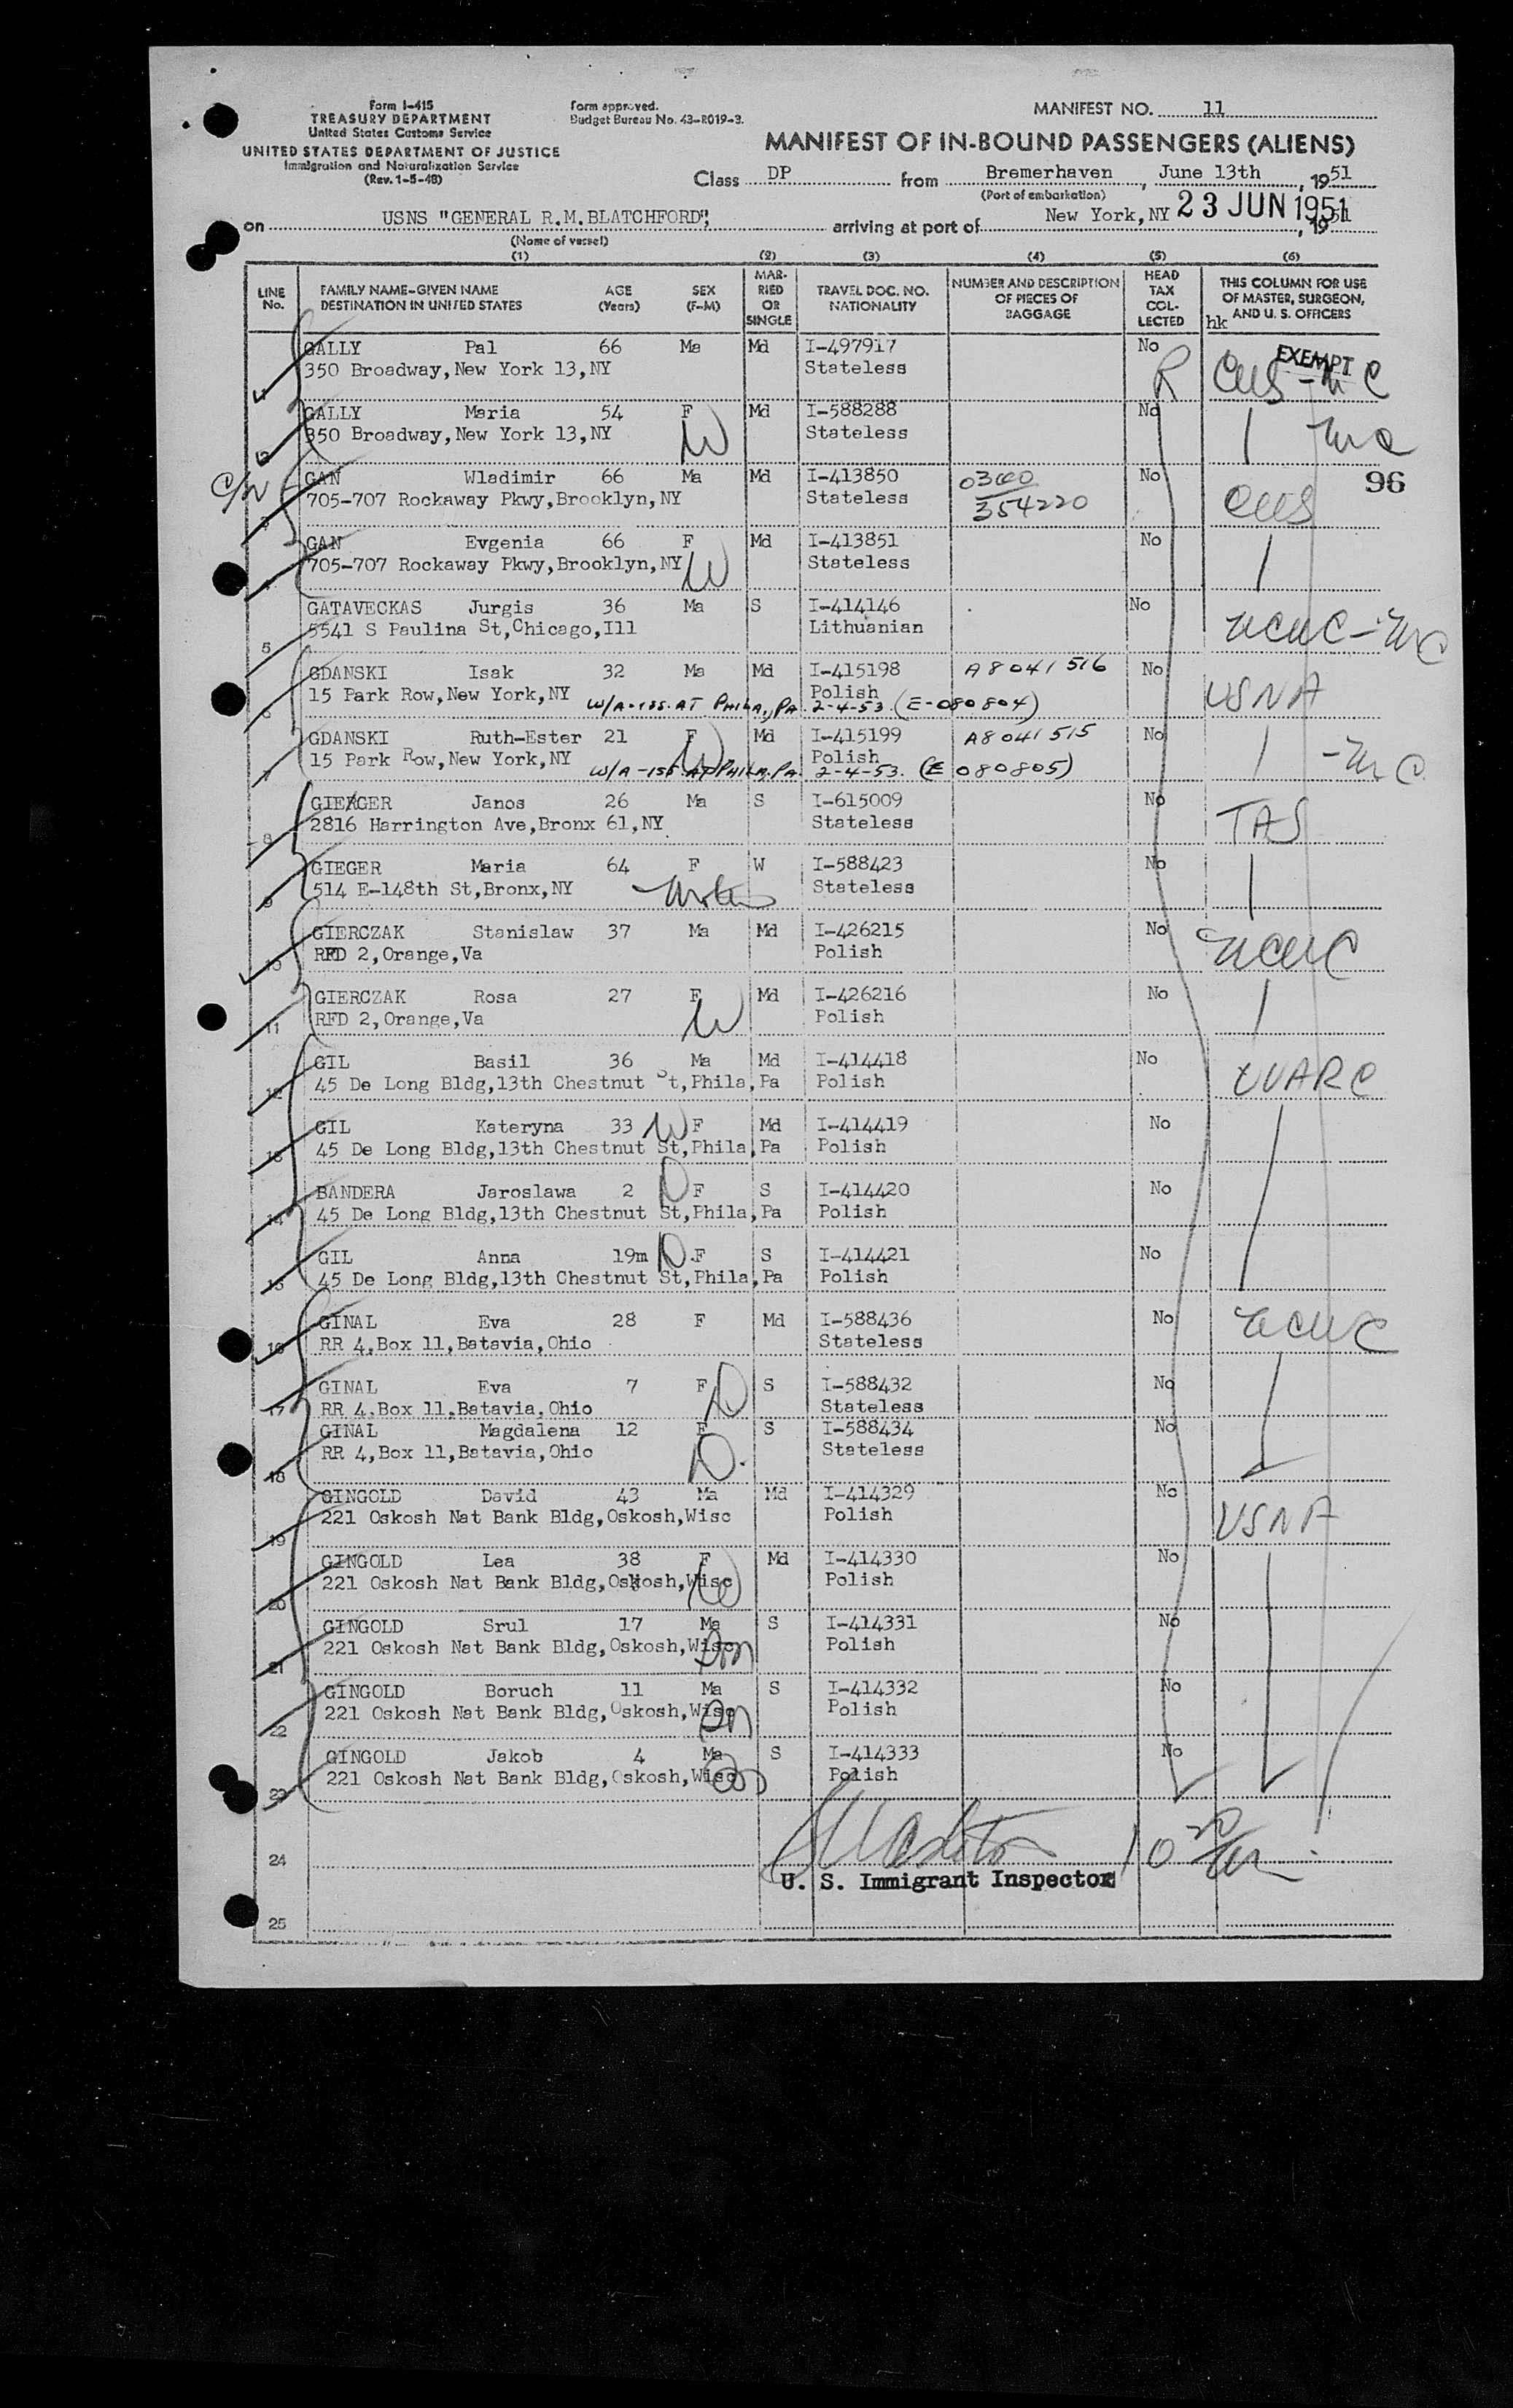 Form I-415
TREASURY DEPARTMENT
United States Customs Service
UNITED STATES DEPARTMENT OF JUSTICE
Immigration and Naturalization Service
(Rev. 1-5-48)
Form approved.
Budget Bureau No. 43-R019-3.
MANIFEST NO. 11
MANIFEST OF IN-BOUND PASSENGERS (ALIENS)
Class DP from Bremerhaven, June 13th, 1951
(Port of embarkation)
on USNS "GENERAL R.M.BLATCHFORD", arriving at port of New York, NY 23 JUN 1951, 1951
(Name of vessel)
(1) (2) (3) (4) (5) (6)
LINE No. FAMILY NAME-GIVEN NAME DESTINATION IN UNITED STATES AGE (Years) SEX (F-M) MAR-RIED OR SINGLE TRAVEL DOC. NO. NATIONALITY NUMBER AND DESCRIPTION OF PIECES OF BAGGAGE HEAD TAX COL-LECTED THIS COLUMN FOR USE OF MASTER, SURGEON, AND U. S. OFFICERS
hk
GALLY Pal 66 Ma Md I-497917 No EXEMPT
350 Broadway, New York 13, NY Stateless R
GALLY Maria 54 F Md I-588288 No
2 350 Broadway, New York 13, NY W Stateless
GAN Wladimir 66 Ma Md I-413850 0300 No 96
3 705-707 Rockaway Pkwy, Brooklyn, NY Stateless 354220
GAN Evgenia 66 F Md I-413851 No
705-707 Rockaway Pkwy, Brooklyn, NY W Stateless
GATAVECKAS Jurgis 36 Ma S I-414146 No
5 5541 S Paulina St, Chicago, Ill Lithuanian NCWC
GDANSKI Isak 32 Ma Md I-415198 A8041516 No
6 15 Park Row, New York, NY Polish USNA
W/A-155 AT PHILA., PA. 2-4-53. (E-080804)
GDANSKI Ruth-Ester 21 F Md I-415199 A8041515 No
7 15 Park Row, New York, NY W Polish
W/A-155 AT PHILA. PA. 2-4-53. (E 080805)
GIERGER Janos 26 Ma S I-615009 No
8 2816 Harrington Ave, Bronx 61, NY Stateless TAS
GIEGER Maria 64 F W I-588423 No
9 514 E-148th St, Bronx, NY Mother Stateless
GIERCZAK Stanislaw 37 Ma Md I-426215 No
10 RFD 2, Orange, Va Polish NCWC
GIERCZAK Rosa 27 F Md I-426216 No
11 RFD 2, Orange, Va W Polish
GIL Basil 36 Ma Md I-414418 No
12 45 De Long Bldg, 13th Chestnut St, Phila, Pa Polish UUARC
GIL Kateryna 33 W F Md I-414419 No
13 45 De Long Bldg, 13th Chestnut St, Phila, Pa Polish
BANDERA Jaroslawa 2 D F S I-414420 No
14 45 De Long Bldg, 13th Chestnut St, Phila, Pa Polish
GIL Anna 19m D F S I-414421 No
15 45 De Long Bldg, 13th Chestnut St, Phila, Pa Polish
GINAL Eva 28 F Md I-588436 No
16 RR 4, Box 11, Batavia, Ohio Stateless NCWC
GINAL Eva 7 F D S I-588432 No
17 RR 4, Box 11, Batavia, Ohio Stateless
GINAL Magdalena 12 F S I-588434 No
18 RR 4, Box 11, Batavia, Ohio D. Stateless
GINGOLD David 43 Ma Md I-414329 No
19 221 Oskosh Nat Bank Bldg, Oskosh, Wisc Polish USNA
GINGOLD Lea 38 F Md I-414330 No
20 221 Oskosh Nat Bank Bldg, Oskosh, Wisc W Polish
GINGOLD Srul 17 Ma S I-414331 No
21 221 Oskosh Nat Bank Bldg, Oskosh, Wisc Son Polish
GINGOLD Boruch 11 Ma S I-414332 No
22 221 Oskosh Nat Bank Bldg, Oskosh, Wisc Son Polish
GINGOLD Jakob 4 Ma S I-414333 No
23 221 Oskosh Nat Bank Bldg, Oskosh, Wisc Son Polish
24
U. S. Immigrant Inspector
25